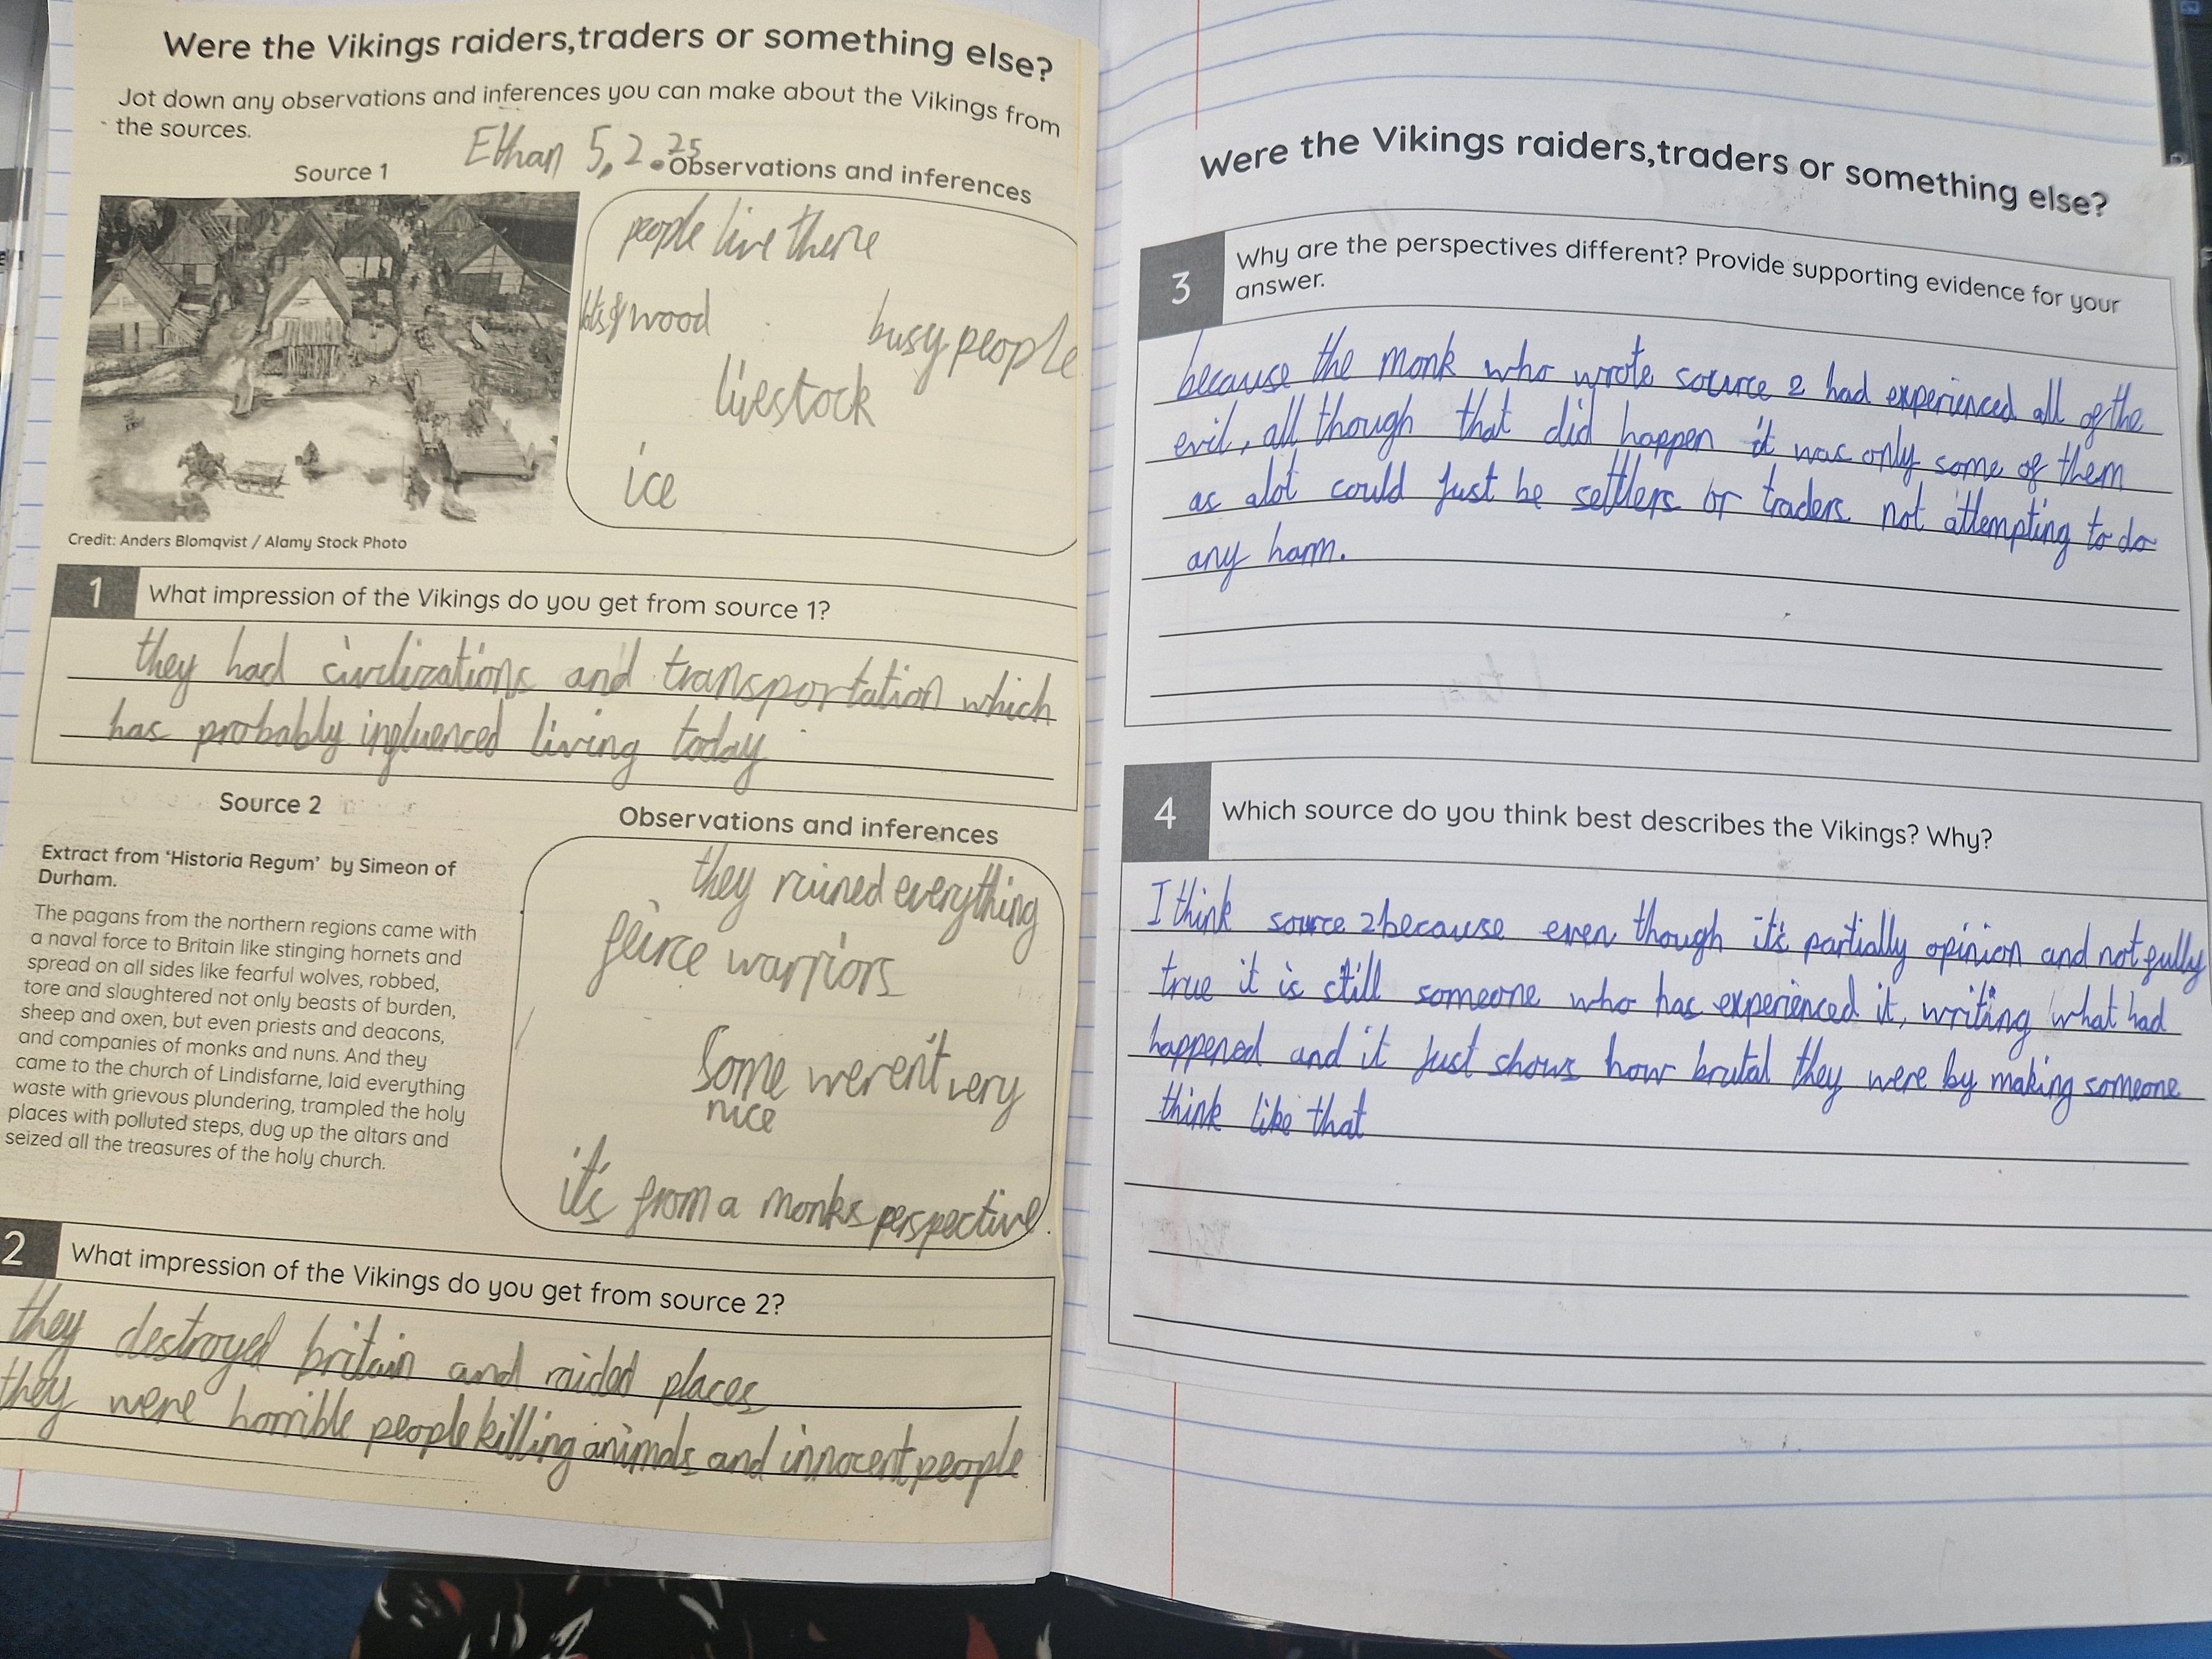 Were the Vikings raiders,traders or something else?
Jot down any observations and inferences you can make about the Vikings from
the sources.
Ethan 5,2.25
Source 1
Observations and inferences
people live there
lots of wood
busy people
livestock
ice
Credit: Anders Blomqvist / Alamy Stock Photo
1 What impression of the Vikings do you get from source 1?
they had civilizations and transportation which
has probably influenced living today
Source 2
Observations and inferences
Extract from 'Historia Regum' by Simeon of
Durham.
The pagans from the northern regions came with
a naval force to Britain like stinging hornets and
spread on all sides like fearful wolves, robbed,
tore and slaughtered not only beasts of burden,
sheep and oxen, but even priests and deacons,
and companies of monks and nuns. And they
came to the church of Lindisfarne, laid everything
waste with grievous plundering, trampled the holy
places with polluted steps, dug up the altars and
seized all the treasures of the holy church.
they ruined everything
feirce warriors
Some weren't very
nice
it's from a monks perspective.
2 What impression of the Vikings do you get from source 2?
they destroyed britain and raided places
they were horrible people killing animals and innocent people
Were the Vikings raiders,traders or something else?
3 Why are the perspectives different? Provide supporting evidence for your
answer.
because the monk who wrote source 2 had experienced all of the
evil, all though that did happen it was only some of them
as alot could just be settlers or traders not attempting to do
any harm.
4 Which source do you think best describes the Vikings? Why?
I think source 2 because even though it's partially opinion and not fully
true it is still someone who has experienced it, writing what had
happened and it just shows how brutal they were by making someone
think like that